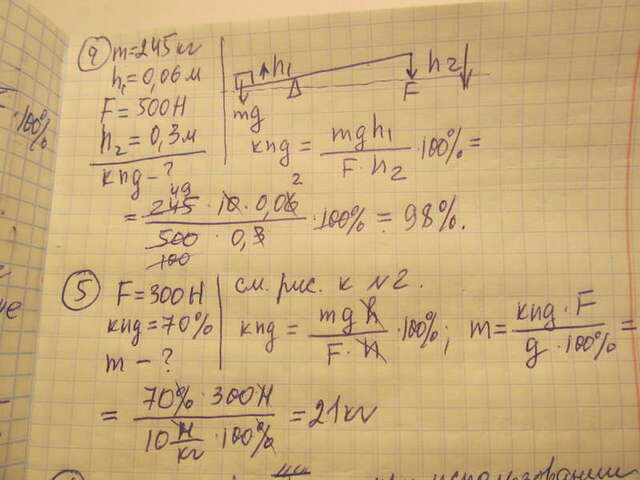 4 m=245кг
h₁=0,06м
F=500Н
h₂=0,3м
кпд-?
h₁
h₂
mg
F
кпд = mgh₁ / F·h₂ ·100% =
= 245·10·0,06 / 500·0,3 ·100% = 98%.
49 2
100
100%
5 F=300Н
кпд=70%
m-?
см. рис. к №2.
кпд = mgh / F·h ·100%; m = кпд·F / g·100% =
= 70%·300Н / 10 Н/кг ·100% = 21кг
использовании